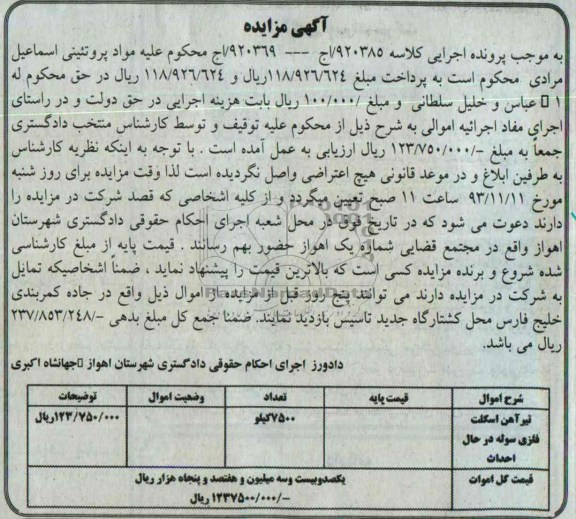 آگهی مزایده
به موجب پرونده اجرایی کلاسه ۹۲۰۳۸۵/اج --- ۹۲۰۳۶۹/اج محکوم علیه مواد پروتئینی اسماعیل
مرادی محکوم است به پرداخت مبلغ ۱۱۸/۹۲۶/۶۲۴ریال و ۱۱۸/۹۲۶/۶۲۴ ریال در حق محکوم له
۱ عباس و خلیل سلطانی و مبلغ /۱۰۰/۰۰۰ ریال بابت هزینه اجرایی در حق دولت و در راستای
اجرای مفاد اجرائیه اموالی به شرح ذیل از محکوم علیه توقیف و توسط کارشناس منتخب دادگستری
جمعاً به مبلغ -/۱۲۳/۷۵۰/۰۰۰ ریال ارزیابی به عمل آمده است . با توجه به اینکه نظریه کارشناس
به طرفین ابلاغ و در موعد قانونی هیچ اعتراضی واصل نگردیده است لذا وقت مزایده برای روز شنبه
مورخ ۹۳/۱۱/۱۱ ساعت ۱۱ صبح تعیین میگردد و از کلیه اشخاصی که قصد شرکت در مزایده را
دارند دعوت می شود که در تاریخ فوق در محل شعبه اجرای احکام حقوقی دادگستری شهرستان
اهواز واقع در مجتمع قضایی شماره یک اهواز حضور بهم رسانند . قیمت پایه از مبلغ کارشناسی
شده شروع و برنده مزایده کسی است که بالاترین قیمت را پیشنهاد نماید ، ضمناً اشخاصیکه تمایل
به شرکت در مزایده دارند می توانند پنج روز قبل از مزایده از اموال ذیل واقع در جاده کمربندی
خلیج فارس محل کشتارگاه جدید تاسیس بازدید نمایند. ضمنا جمع کل مبلغ بدهی -/۲۳۷/۸۵۳/۲۴۸
ریال می باشد.
دادورز اجرای احکام حقوقی دادگستری شهرستان اهواز جهانشاه اکبری
شرح اموال قیمت پایه تعداد وضعیت اموال توضیحات
تیرآهن اسکلت ۷۵۰۰کیلو ۱۲۳/۷۵۰/۰۰۰ریال
فلزی سوله در حال
احداث
قیمت کل اموات یکصدوبیست وسه میلیون و هفتصد و پنجاه هزار ریال
-/۱۲۳۷۵۰۰/۰۰۰ ریال